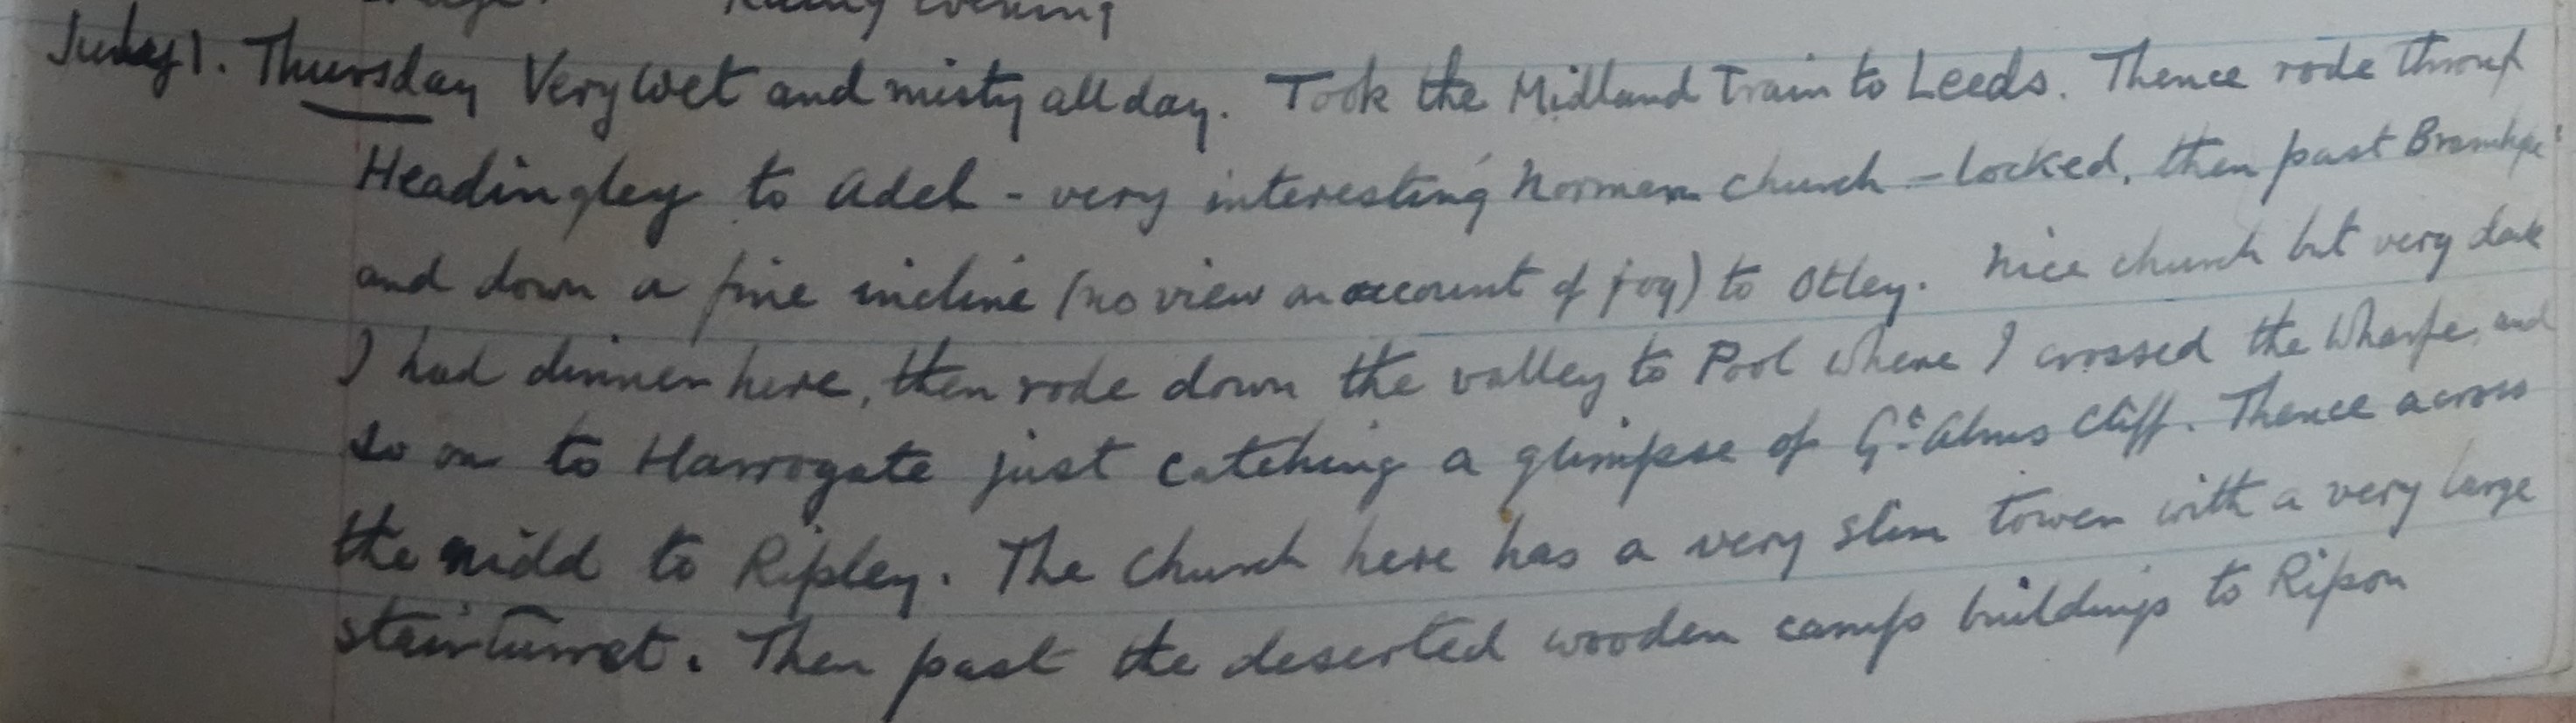 Rainy evening
July 1. Thursday Very wet and misty all day. Took the Midland Train to Leeds. Thence rode through
Headingley to Adel - very interesting Norman church - locked, then past Bramhope
and down a fine incline (no view on account of fog) to Otley. Nice church but very dark
I had dinner here, then rode down the valley to Pool where I crossed the Wharfe and
so on to Harrogate just catching a glimpse of Gt Alms Cliff. Thence across
the Nidd to Ripley. The church here has a very slim tower with a very large
stair turret. Then past the deserted wooden camp buildings to Ripon